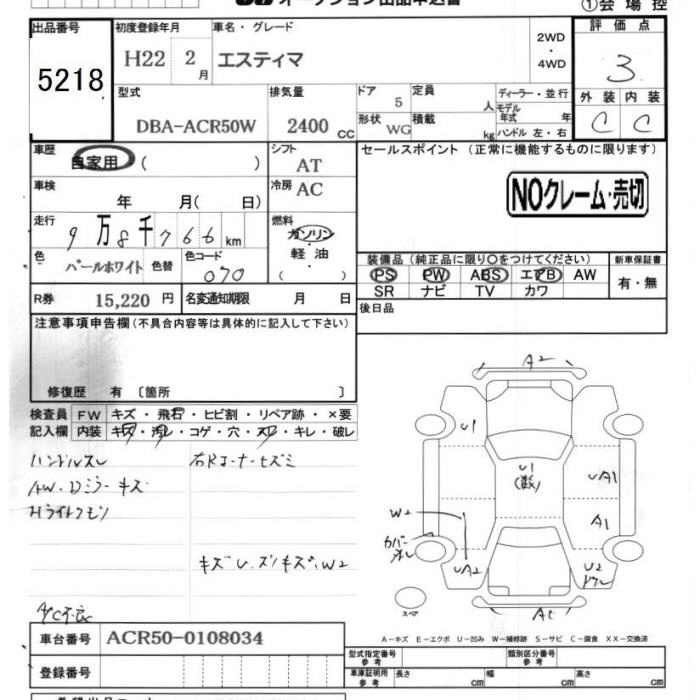 オークション出品申込書
①会場控
出品番号 5218
初度登録年月 H22 2月
車名・グレード エスティマ
2WD・4WD
評価点 3
型式 DBA-ACR50W
排気量 2400 cc
ドア 5
形状 WG
定員 人
積載 kg
ディーラー・並行
モデル年式 年
ハンドル 左・右
外装 C
内装 C
車歴 自家用 ( )
シフト AT
セールスポイント (正常に機能するものに限ります)
車検 年 月( 日)
冷房 AC
NOクレーム・売切
走行 9万8千766km
燃料 ガソリン・軽油・( )
色 パールホワイト 色替
色コード 070
装備品 (純正品に限り○をつけてください)
PS PW ABS エアB AW
SR ナビ TV カワ
新車保証書 有・無
R券 15,220 円
名変通知期限 月 日
後日品
注意事項申告欄 (不具合内容等は具体的に記入して下さい)
修復歴 有 〔箇所 〕
検査員記入欄
FW キズ・飛石・ヒビ割・リペア跡・×要
内装 キズ・汚レ・コゲ・穴・スレ・キレ・破レ
ハンドルスレ
AW.Dミラーキズ
Hライトクモリ
右Rコーナーヒズミ
キズU.ズリキズ、W2
A/C不良
A2
U1
U1
(数)
UA1
A1
W2
カバー
UA2
U2
スペ
A－キズ E－エクボ U－凹み W－補修跡 S－サビ C－腐食 XX－交換済
車台番号 ACR50-0108034
登録番号
型式指定番号 参考
類別区分番号 参考
車庫証明用 参考 長さ cm 幅 cm 高さ cm